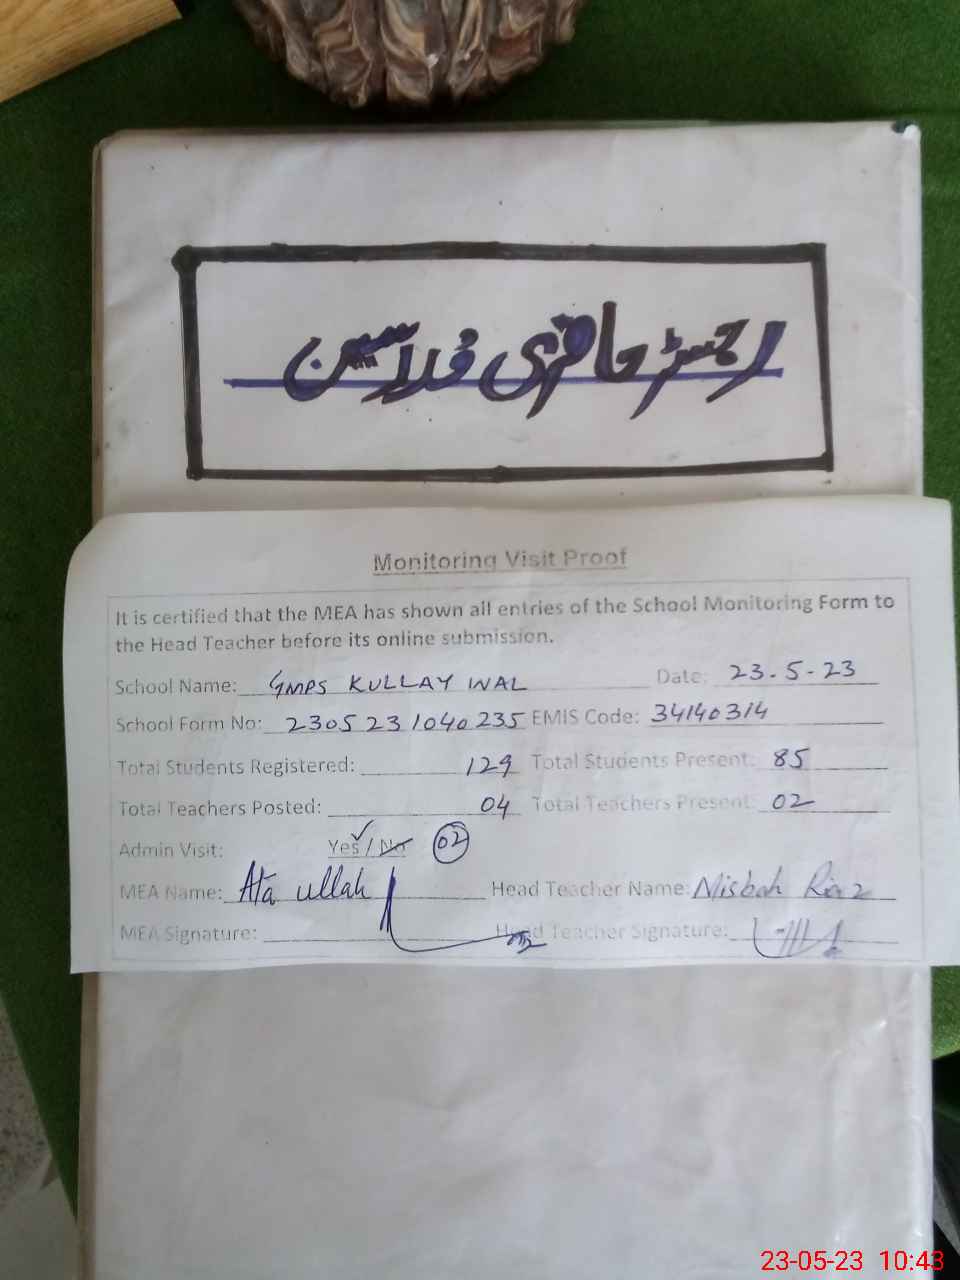 رجسٹر حاضری مدرسین
Monitoring Visit Proof
It is certified that the MEA has shown all entries of the School Monitoring Form to
the Head Teacher before its online submission.
School Name: GMPS KULLAY WAL Date: 23-5-23
School Form No: 2305231040235 EMIS Code: 34140314
Total Students Registered: 129 Total Students Present: 85
Total Teachers Posted: 04 Total Teachers Present: 02
Admin Visit: Yes / No 02
MEA Name: Ata ullah Head Teacher Name: Misbah Riaz
MEA Signature: Head Teacher Signature:
23-05-23 10:43